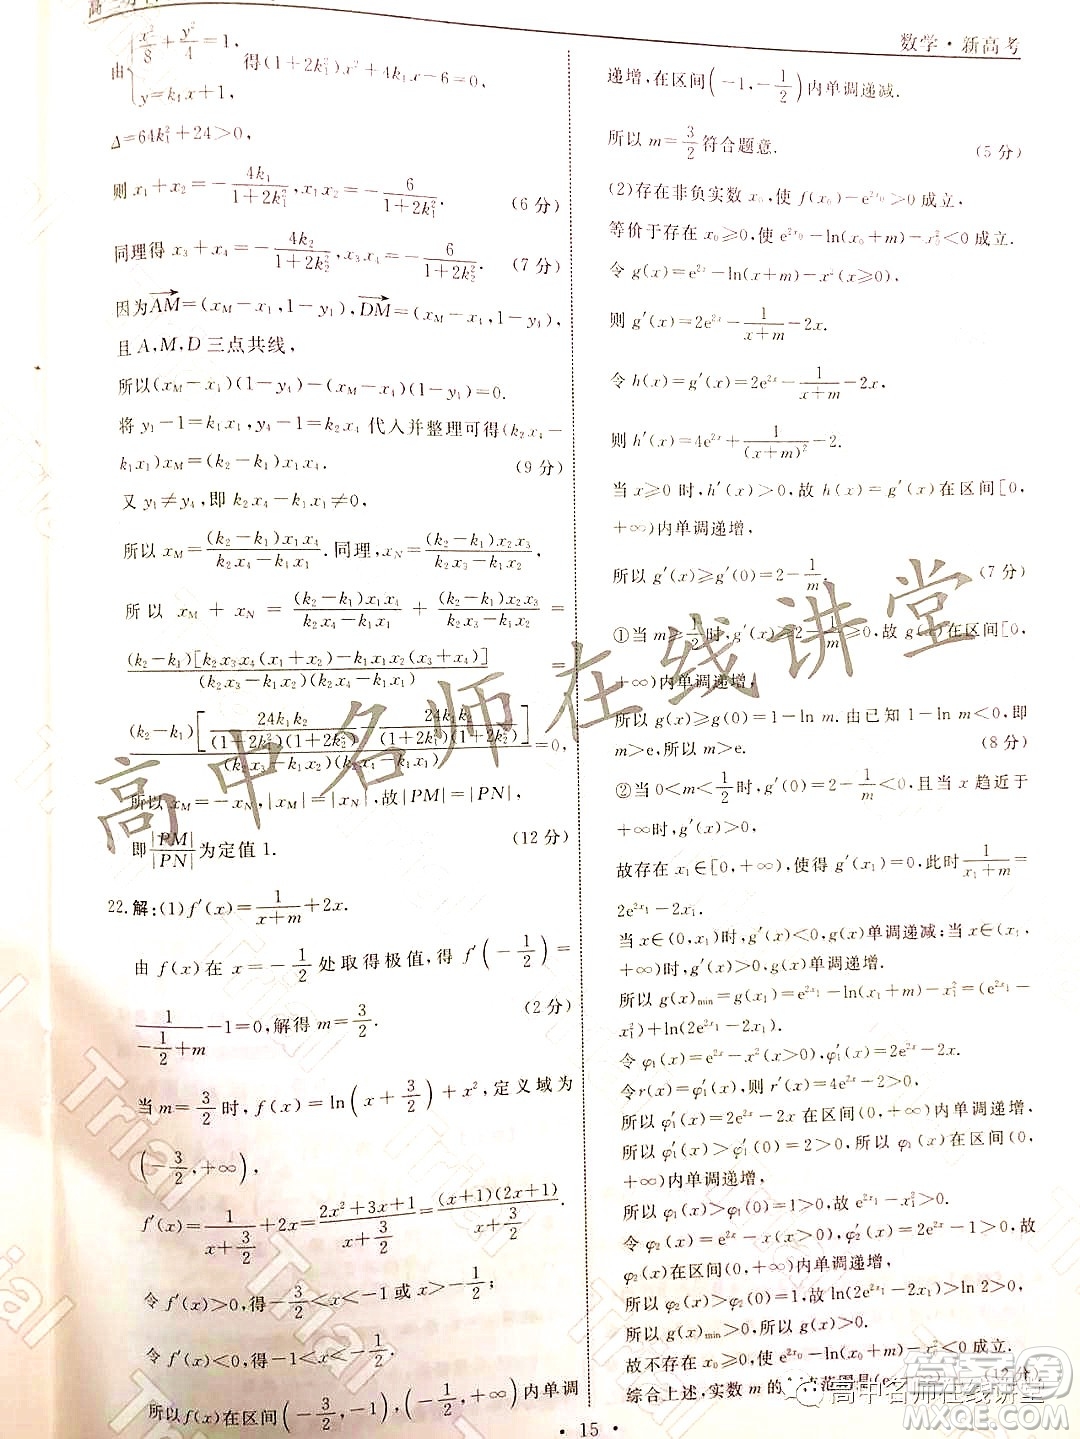 数学·新高考
由{x²/8+y²/4=1, y=k₁x+1, 得(1+2k₁²)x²+4k₁x-6=0,
Δ=64k₁²+24>0,
则x₁+x₂=-4k₁/(1+2k₁²),x₁x₂=-6/(1+2k₁²). (6分)
同理得x₃+x₄=-4k₂/(1+2k₂²),x₃x₄=-6/(1+2k₂²). (7分)
因为AM→=(x_M-x₁,1-y₁),DM→=(x_M-x₄,1-y₄),
且A,M,D三点共线,
所以(x_M-x₁)(1-y₄)-(x_M-x₄)(1-y₁)=0.
将y₁-1=k₁x₁,y₄-1=k₂x₄代入并整理可得(k₂x₄-
k₁x₁)x_M=(k₂-k₁)x₁x₄. (9分)
又y₁≠y₄,即k₂x₄-k₁x₁≠0,
所以x_M=(k₂-k₁)x₁x₄/(k₂x₄-k₁x₁).同理,x_N=(k₂-k₁)x₂x₃/(k₂x₃-k₁x₂),
所以 x_M + x_N = (k₂-k₁)x₁x₄/(k₂x₄-k₁x₁) + (k₂-k₁)x₂x₃/(k₂x₃-k₁x₂) =
(k₂-k₁)[k₂x₃x₄(x₁+x₂)-k₁x₁x₂(x₃+x₄)]/(k₂x₃-k₁x₂)(k₂x₄-k₁x₁) =
(k₂-k₁)[24k₁k₂/(1+2k₁²)(1+2k₂²)-24k₁k₂/(1+2k₁²)(1+2k₂²)]/(k₂x₃-k₁x₂)(k₂x₄-k₁x₁)=0,
所以x_M=-x_N,|x_M|=|x_N|,故|PM|=|PN|,
即|PM|/|PN|为定值1. (12分)
22.解:(1)f′(x)=1/(x+m)+2x.
由f(x)在x=-1/2处取得极值,得f′(-1/2)=
1/(-1/2+m)-1=0,解得m=3/2. (2分)
当m=3/2时,f(x)=ln(x+3/2)+x²,定义域为
(-3/2,+∞),
f′(x)=1/(x+3/2)+2x=(2x²+3x+1)/(x+3/2)=(x+1)(2x+1)/(x+3/2).
令f′(x)>0,得-3/2<x<-1或x>-1/2;
令f′(x)<0,得-1<x<-1/2.
所以f(x)在区间(-3/2,-1),(-1/2,+∞)内单调
递增,在区间(-1,-1/2)内单调递减.
所以m=3/2符合题意. (5分)
(2)存在非负实数x₀,使f(x₀)-e^(2x₀)>0成立,
等价于存在x₀≥0,使e^(2x₀)-ln(x₀+m)-x₀²<0成立.
令g(x)=e^(2x)-ln(x+m)-x²(x≥0),
则g′(x)=2e^(2x)-1/(x+m)-2x.
令h(x)=g′(x)=2e^(2x)-1/(x+m)-2x,
则h′(x)=4e^(2x)+1/(x+m)²-2.
当x≥0时,h′(x)>0,故h(x)=g′(x)在区间[0,
+∞)内单调递增,
所以g′(x)≥g′(0)=2-1/m. (7分)
①当m≥1/2时,g′(x)≥2-1/m≥0,故g(x)在区间[0,
+∞)内单调递增,
所以g(x)≥g(0)=1-ln m.由已知1-ln m<0,即
m>e,所以m>e. (8分)
②当0<m<1/2时,g′(0)=2-1/m<0,且当x趋近于
+∞时,g′(x)>0,
故存在x₁∈[0,+∞),使得g′(x₁)=0,此时1/(x₁+m)=
2e^(2x₁)-2x₁.
当x∈(0,x₁)时,g′(x)<0,g(x)单调递减;当x∈
(x₁,+∞)时,g′(x)>0,g(x)单调递增.
所以g(x)_min=g(x₁)=e^(2x₁)-ln(x₁+m)-x₁²=(e^(2x₁)-
x₁²)+ln(2e^(2x₁)-2x₁).
令φ₁(x)=e^(2x)-x²(x>0),φ₁′(x)=2e^(2x)-2x.
令r(x)=φ₁′(x),则r′(x)=4e^(2x)-2>0,
所以φ₁′(x)=2e^(2x)-2x在区间(0,+∞)内单调递增,
所以φ₁′(x)>φ₁′(0)=2>0,所以φ₁(x)在区间(0,
+∞)内单调递增,
所以φ₁(x)>φ₁(0)=1>0,故e^(2x₁)-x₁²>0.
令φ₂(x)=e^(2x)-x(x>0),φ₂′(x)=2e^(2x)-1>0,故
φ₂(x)在区间(0,+∞)内单调递增,
所以φ₂(x)>φ₂(0)=1,故ln(2e^(2x₁)-2x₁)>ln 2>0,
所以g(x)_min>0,所以g(x)>0.
故不存在x₀≥0,使e^(2x₀)-ln(x₀+m)-x₀²<0成立.
综合上述,实数m的
范围是(e
12分
·15·
高中名师在线讲堂
高中名师在线讲堂
Trial
Trial
Trial
答案圈
MXQE.COM